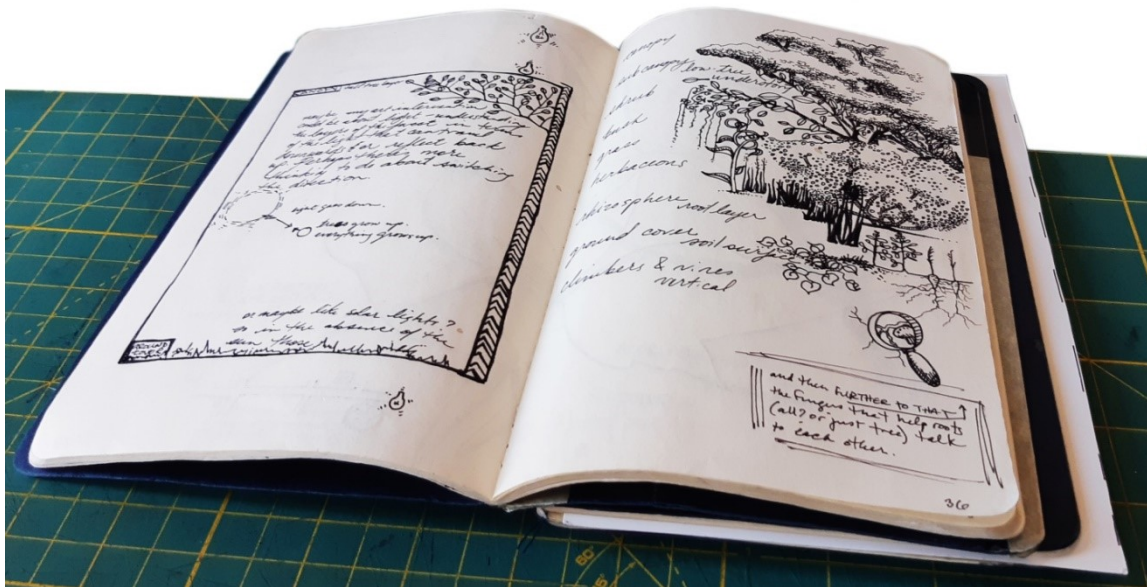 maybe my art intervention
to be about light underneath
the layers of
of the light that can travel
downwards or reflect back
up. Perhaps there's more
thinking to do about switching
the direction.
light goes down.
trees grow up.
everything grows up.
or maybe like solar lights?
or in the absence of the
sun these
GROUND
COVER
canopy
sub canopy low tree
understory
shrub
bush
grass
herbaceous
rhizosphere root layer
ground cover
soil surface
climbers & vines
vertical
and then FURTHER TO THAT
the fungus that help roots
(all? or just tree) talk
to each other.
36